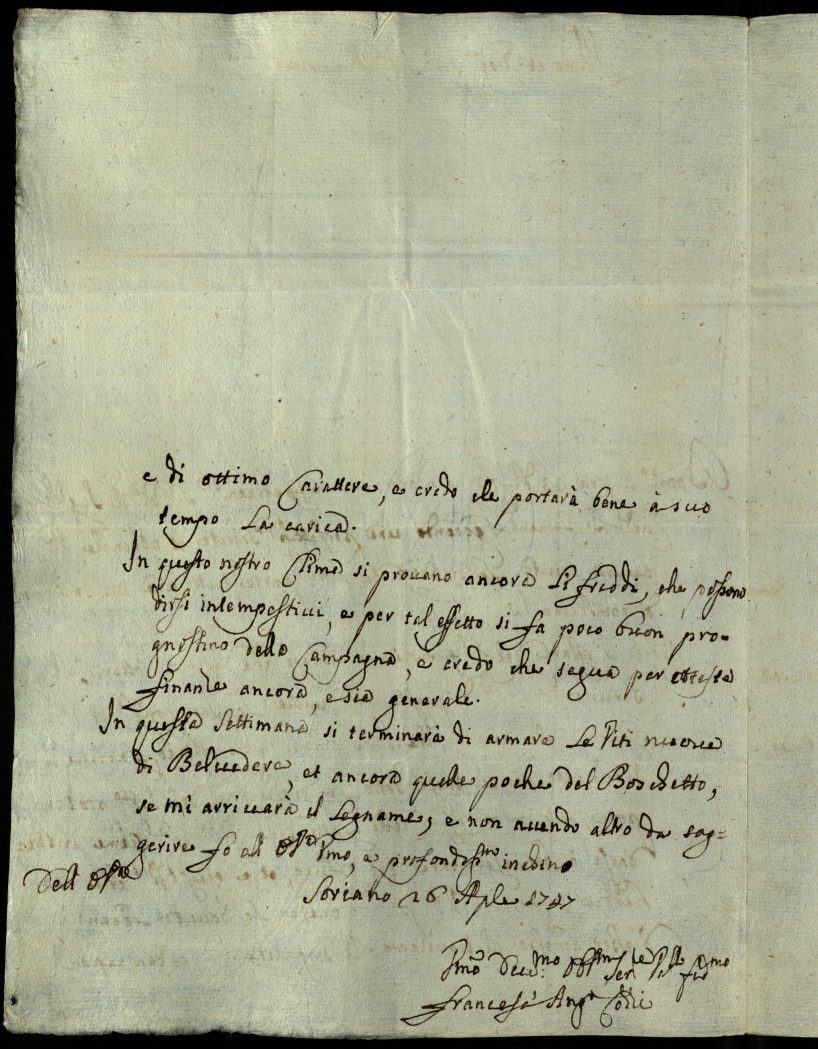 e di ottimo Carattere, e credo che portarà bene à suo
tempo La carica.
In questo nostro Clima si prouano ancora Li freddi, che possono
dirsi intempestiui, e per tal effetto si fa poco buon pro=
gnostino della Campagna, e credo che segua per coteste
finanze ancora, e sia generale.
In questa Settimana si terminarà di armare Le Viti nuoue
di Beluedere, et ancora quelle poche del Boschetto,
se mi arriuarà il Legname; e non auendo altro da sog=
gerire fo all' umo, e profondissmo inchino
Dell'
Soriano 26 Aple 1747
Serure
Francesco Ango